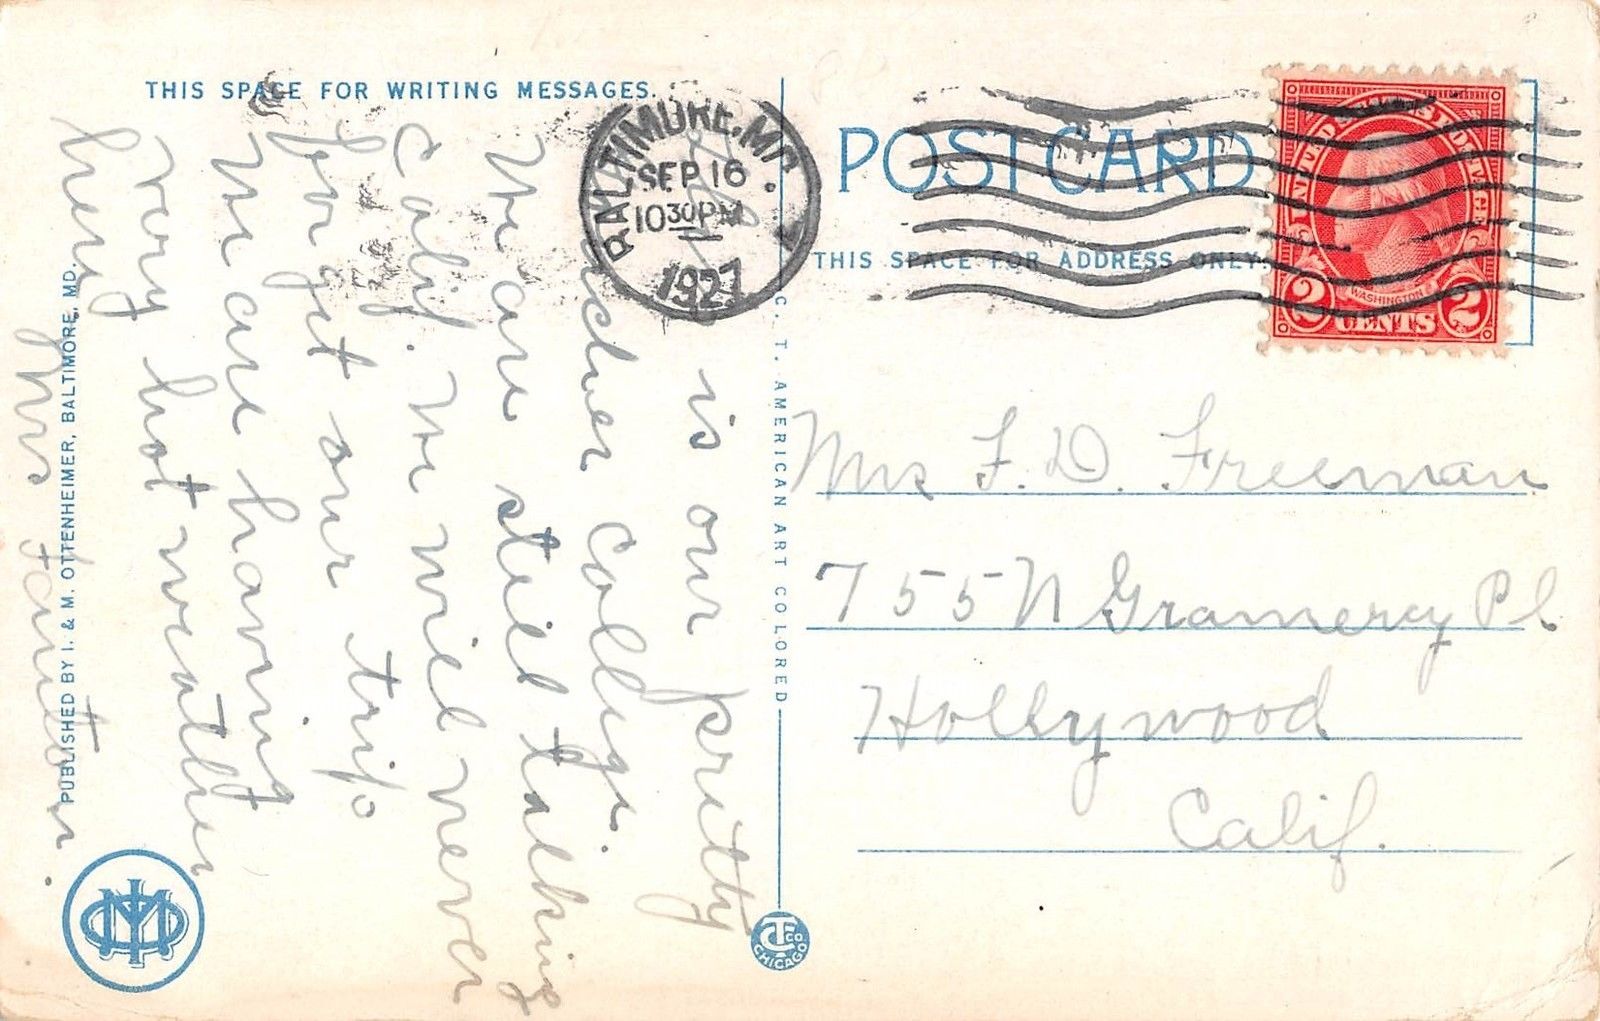 THIS SPACE FOR WRITING MESSAGES.
is our prity
Colledge.
We are still talking
Calif. We will never
for get our trip
We are having
very hot weather
here
Mrs
PUBLISHED BY I. & M. OTTENHEIMER, BALTIMORE, MD.
C. T. AMERICAN ART COLORED
CT CO CHICAGO
BALTIMORE, MD.
SEP 16
10 30 PM
1927
POST CARD
THIS SPACE FOR ADDRESS ONLY.
WASHINGTON
2 CENTS 2
Mrs F. D. Freeman
755 N Gramercy Pl
Hollywood
Calif.